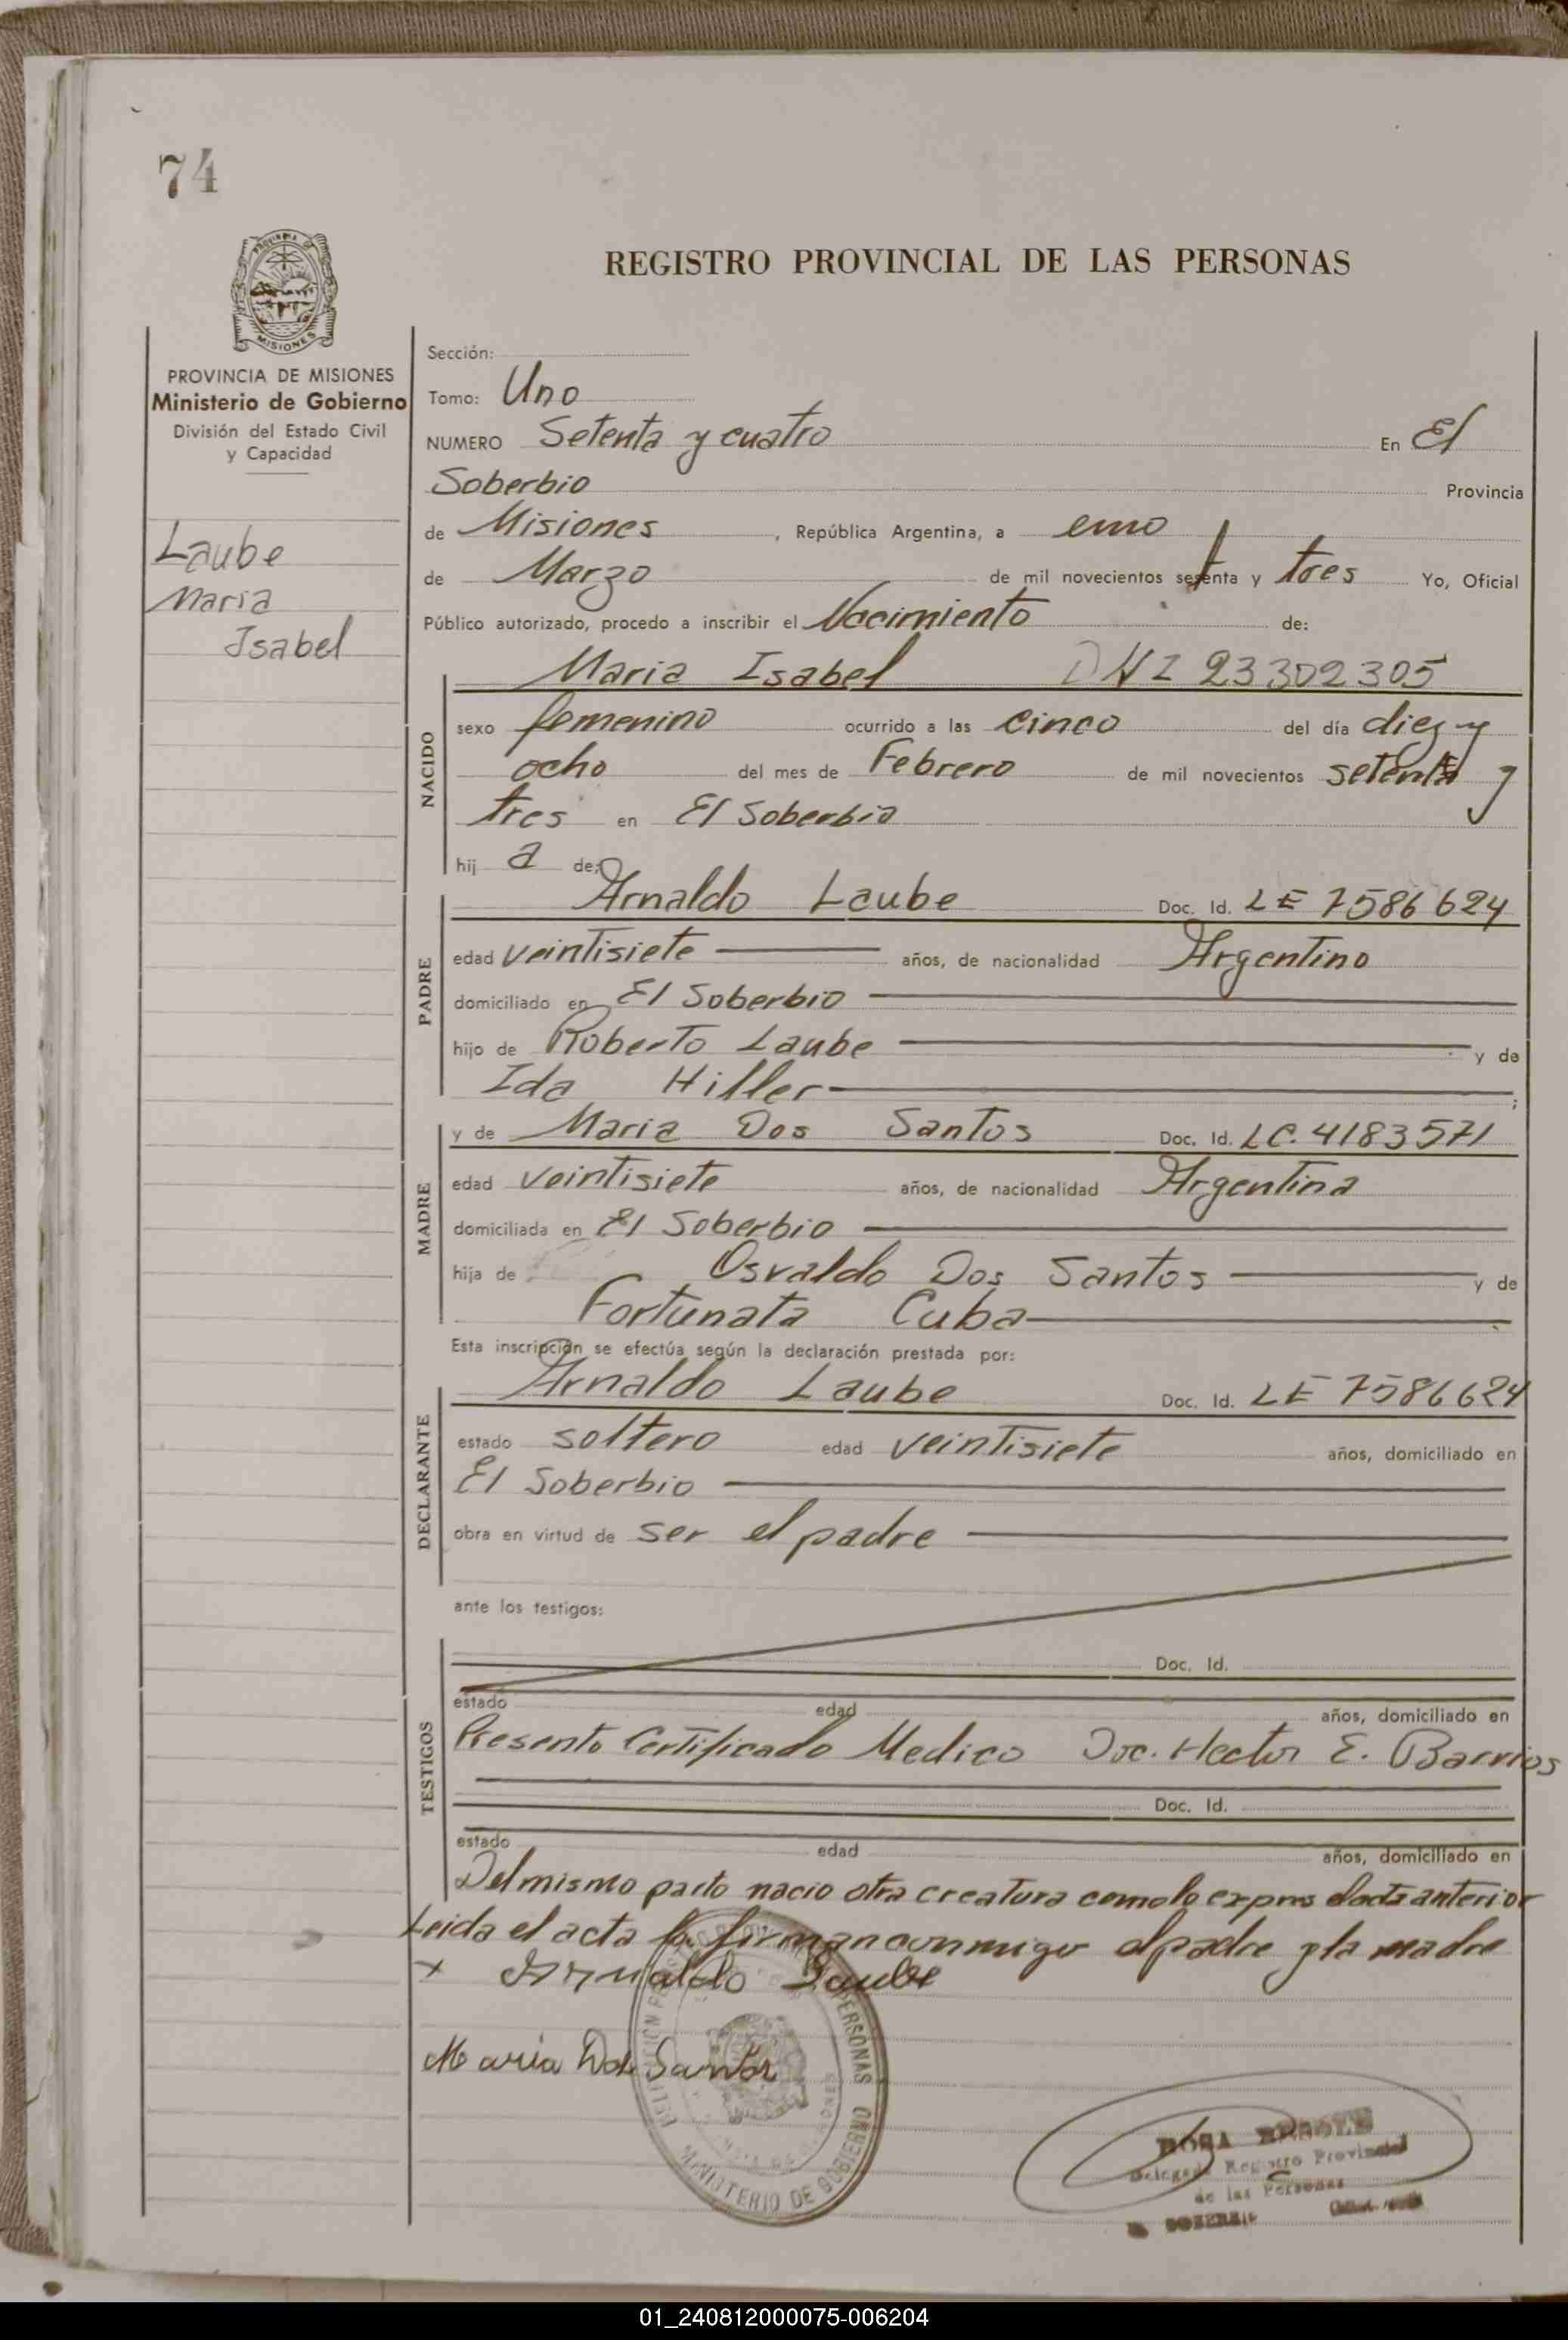 74
REGISTRO PROVINCIAL DE LAS PERSONAS
PROVINCIA DE MISIONES
Ministerio de Gobierno
División del Estado Civil
y Capacidad
Laube
Maria
Isabel
Sección:
Tomo: Uno
NUMERO Setenta y cuatro En El
Soberbio Provincia
de Misiones , República Argentina, a
de Marzo de mil novecientos setenta y tres Yo, Oficial
Público autorizado, procedo a inscribir el Nacimiento de:
Maria Isabel DNI 23302305
NACIDO
sexo femenino ocurrido a las cinco del día diez y
ocho del mes de Febrero de mil novecientos setenta y
tres en El Soberbio
hij a de:
PADRE
Arnaldo Laube Doc. Id. LE 7586624
edad veintisiete años, de nacionalidad Argentino
domiciliado en El Soberbio
hijo de Roberto Laube y de
Ida Hiller ;
MADRE
y de Maria Dos Santos Doc. Id. LC. 4183571
edad veintisiete años, de nacionalidad Argentina
domiciliada en El Soberbio
hija de Osvaldo Dos Santos y de
Fortunata Cuba
Esta inscripción se efectúa según la declaración prestada por:
DECLARANTE
Arnaldo Laube Doc. Id. LE 7586624
estado soltero edad veintisiete años, domiciliado en
El Soberbio
obra en virtud de ser el padre
ante los testigos:
TESTIGOS
Doc. Id.
estado edad años, domiciliado en
Presento Certificado Medico Doc. Hector E. Barrios
Doc. Id.
estado edad años, domiciliado en
Del mismo parto nacio otra creatura como lo anterior
Leida el acta la firman conmigo el padre y la madre
x Arnaldo Laube
Maria Dos Santos
PERSONAS
MINISTERIO DE GOBIERNO
ROSA
Delegada Registro Provincial
de las Personas
01_240812000075-006204